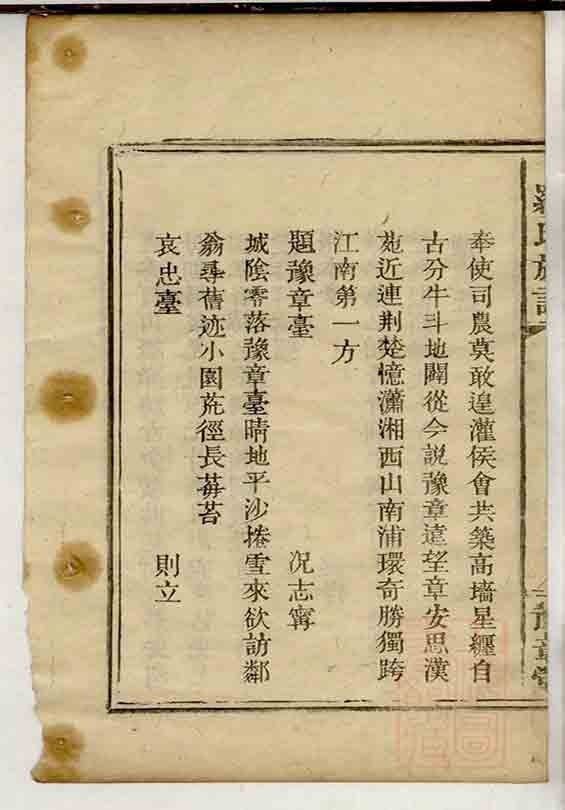 羅氏族譜
豫章堂
奉使司農莫敢遑灌侯會共築高墻星纏自
古分牛斗地闢從今說豫章遠望章安思漢
苑近連荆楚憶瀟湘西山南浦環奇勝獨跨
江南第一方
題豫章臺 况志寗
城陰零落豫章臺晴地平沙捲雪來欲訪鄰
翁尋舊迹小園荒徑長莓苔
哀忠臺 則立